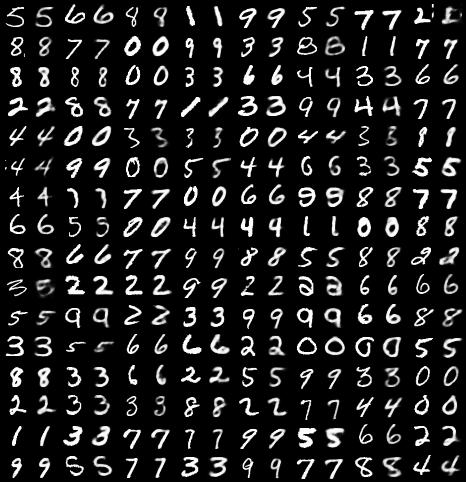 5 5 6 6 8 8 1 1 9 9 5 5 7 7 2
8 8 7 7 0 0 9 9 3 3 8 8 1 1 7 7
8 8 8 8 0 0 3 3 6 6 4 4 3 3 6 6
2 2 8 8 7 7 1 1 3 3 9 9 4 4 7 7
4 4 0 0 3 3 3 3 0 0 4 4 3 3
4 4 9 9 0 0 5 5 4 4 6 6 3 3 5 5
4 4 7 7 7 7 0 0 6 6 9 9 8 8 7 7
6 6 5 5 0 0 4 4 4 4 1 1 0 0 8 8
8 8 6 6 7 7 9 9 8 8 5 5 8 8 2 2
3 5 2 2 2 2 9 9 2 2 2 2 6 6 6 6
5 5 9 9 2 2 3 3 9 9 9 9 6 6 8 8
3 3 5 5 6 6 6 6 2 2 0 0 0 0 5 5
8 8 3 3 6 6 2 2 5 5 9 9 3 3 0 0
2 2 3 3 3 3 8 8 2 2 7 7 4 4 0 0
1 1 3 3 7 7 7 7 9 9 5 5 6 6 2 2
9 9 5 5 7 7 3 3 9 9 7 7 8 8 4 4